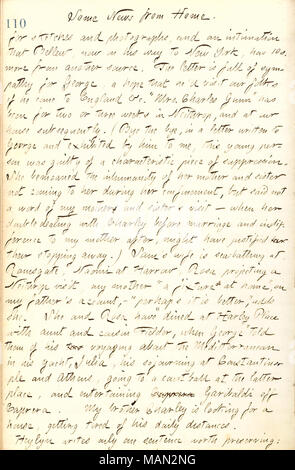 110
Some News from Home.
for sketches and photographs, and an intimation
that Bellew now on his way to New York, has
more from another source. The letter is full of sym-
pathy for George, a hope that he'd visit our folks
if he came to England &c. Mrs. Charles Gunn has
been for two or three weeks in Neithrop, and at our
house subsequently. (Bye the bye, in a letter written to
George and exhibited by him to me, this young per-
son was guilty of a characteristic piece of suppression.
She bemoaned the inhumanity of her mother and sister
not coming to her during her confinement, but said not
a word of my mother's and sister's visit — when her
double dealing with Charley before marriage and indif-
ference to my mother after, might have justified
their stopping away.) Sam's wife is sea-bathing at
Ramsgate, Naomi at Harrow, Rosa projecting a
Neithrop visit my mother "a fixture at home, on
my father's account," — "perhaps it is better," adds
she. She and Rosa have dined at Harley Place
with aunt and cousin Fiddor, when George told
them of his voyaging about the Mediterranean
in his yacht, Julia, his sojourning at Constantino-
ple and Athens, going to a court ball at the latter
place, and entertaining Garibaldi off
Caprera. My brother Charley is looking for a
house, getting tired of his daily distances.
Heylyn writes only one sentence worth preserving:
alamy
Image ID: MAN2NG
www.alamy.com